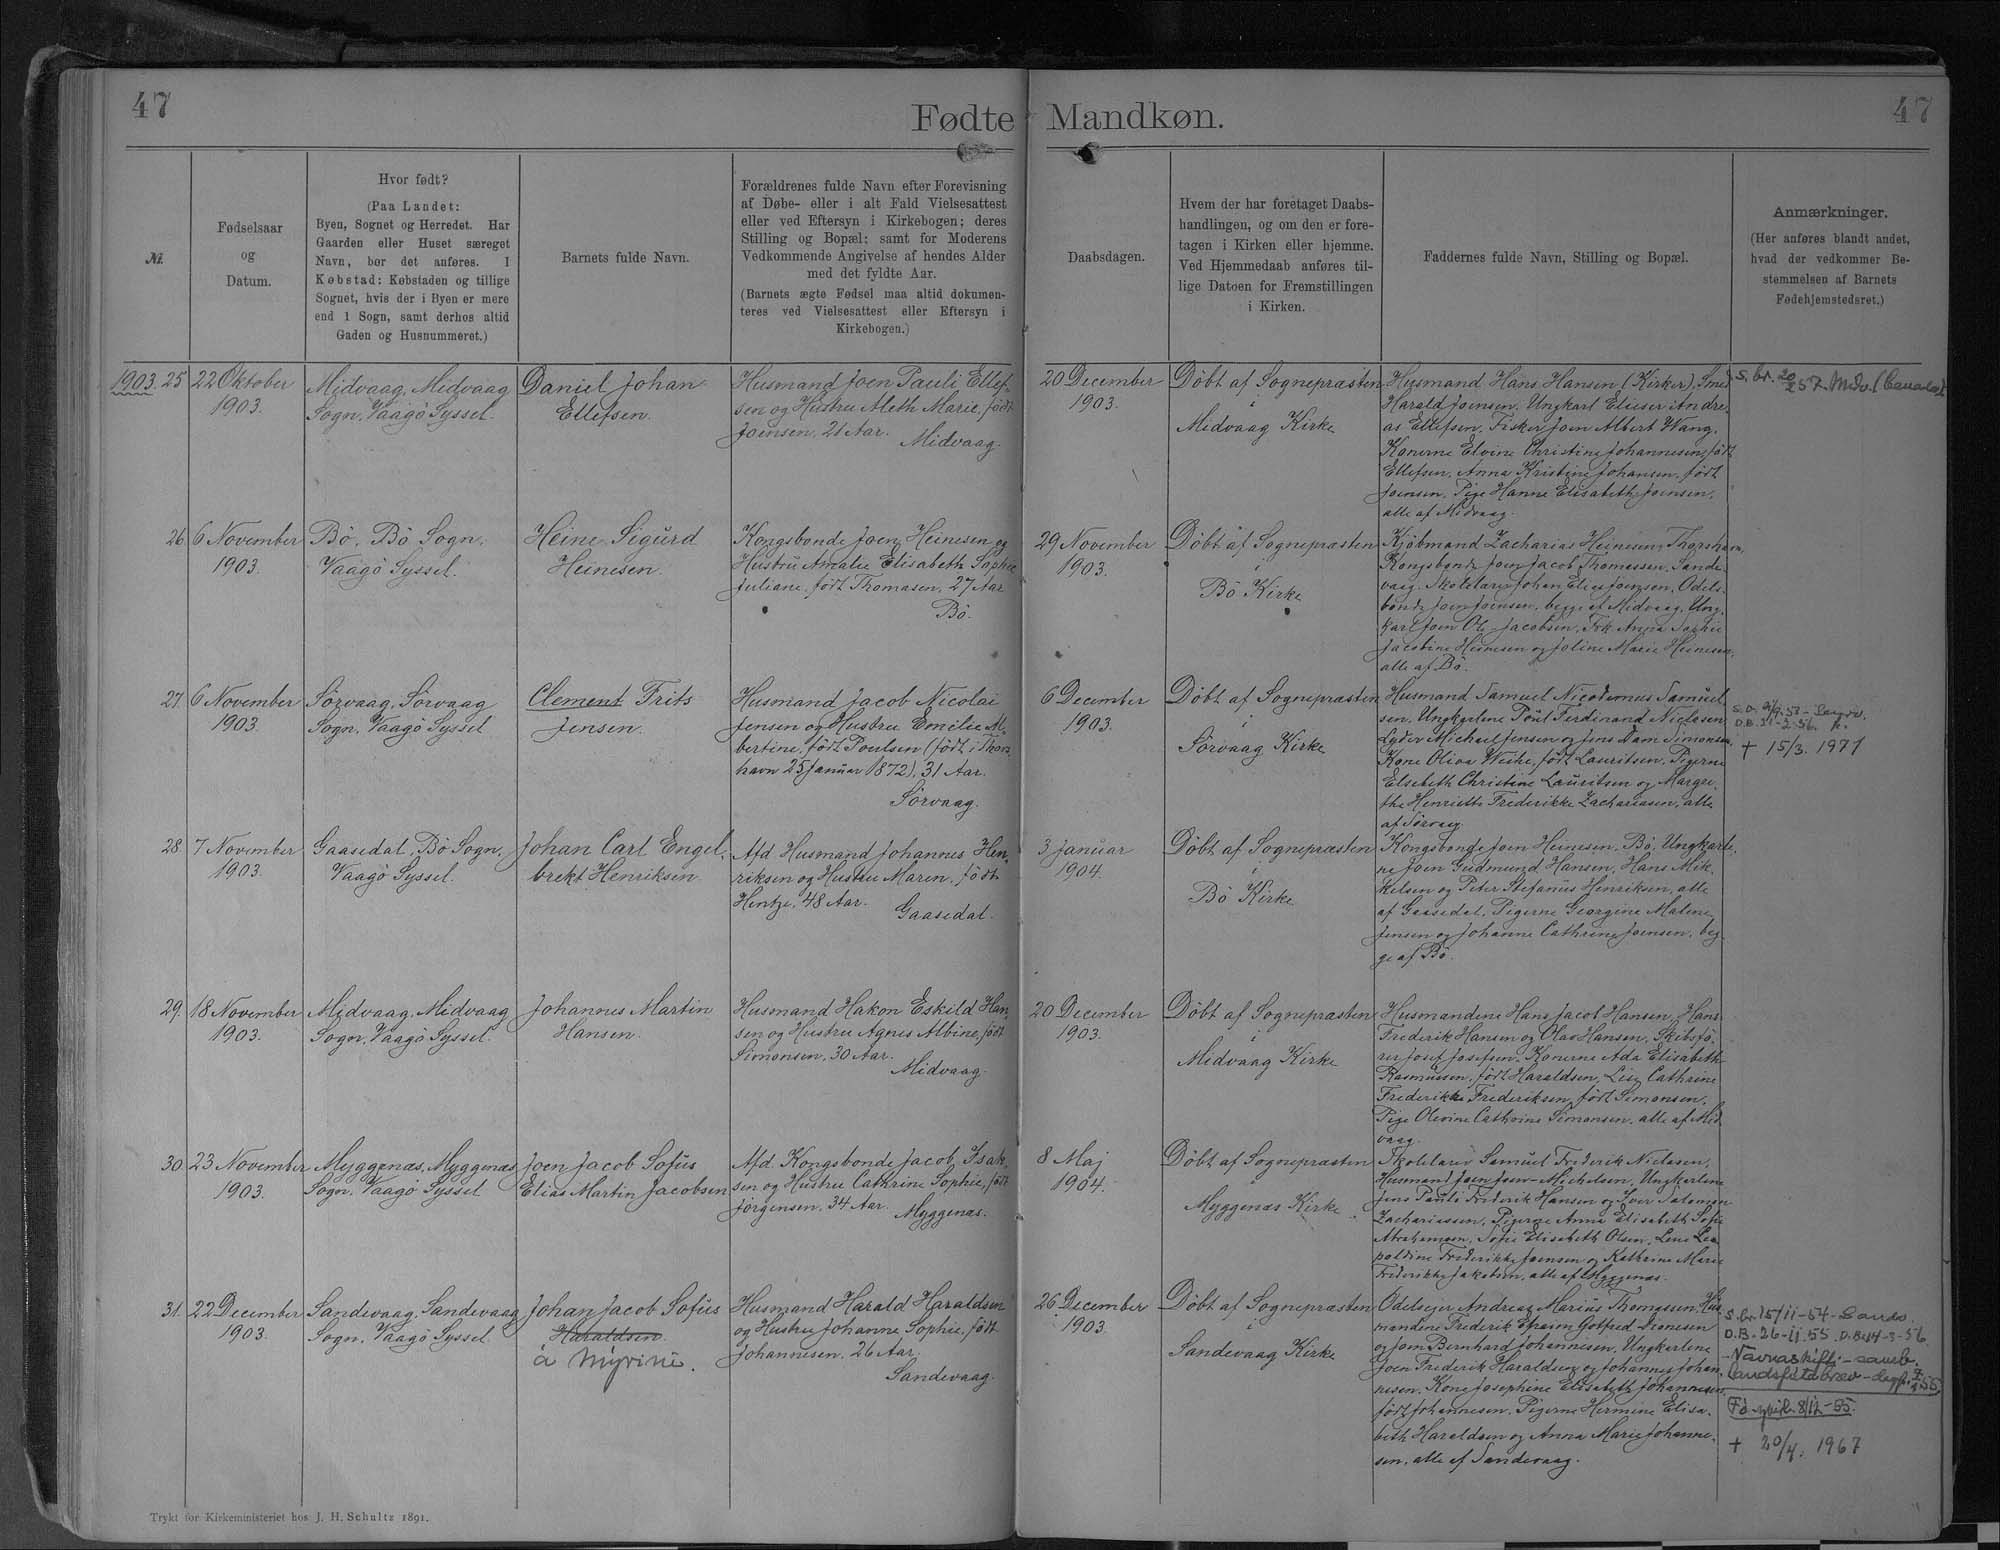 47
Fødte Mandkøn.
47
№.
Fødselsaar
og
Datum.
Hvor født?
(Paa Landet:
Byen, Sognet og Herredet. Har
Gaarden eller Huset særeget
Navn, bør det anføres. I
Købstad: Købstaden og tillige
Sognet, hvis der i Byen er mere
end 1 Sogn, samt derhos altid
Gaden og Husnummeret.)
Barnets fulde Navn.
Forældrenes fulde Navn efter Forevisning
af Døbe- eller i alt Fald Vielsesattest
eller ved Eftersyn i Kirkebogen; deres
Stilling og Bopæl; samt for Moderens
Vedkommende Angivelse af hendes Alder
med det fyldte Aar.
(Barnets ægte Fødsel maa altid dokumen-
teres ved Vielsesattest eller Eftersyn i
Kirkebogen.)
Daabsdagen.
Hvem der har foretaget Daabs-
handlingen, og om den er fore-
tagen i Kirken eller hjemme.
Ved Hjemmedaab anføres til-
lige Datoen for Fremstillingen
i Kirken.
Faddernes fulde Navn, Stilling og Bopæl.
Anmærkninger.
(Her anføres blandt andet,
hvad der vedkommer Be-
stemmelsen af Barnets
Fødehjemstedsret.)
1903. 25
22 Oktober
1903.
Midvaag, Midvaag
Sogn, Vaagö Syssel.
Daniel Johan
Ellefsen.
Husmand Joen Pauli Ellef-
sen og Hustru Meth Marie, født
Joensen, 21 Aar.
Midvaag.
20 December
1903.
Döbt af Sognepræsten
i
Midvaag Kirke
Husmand Hans Hansen (Kirker), Smed
Harald Joensen, Ungkarl Elieser Andre-
as Ellefsen, Fisker Joen Albert Wang.
Konerne Elvine Christine Johannesen, født
Ellefsen, Anna Kristine Johansen, født
Joensen, Pige Hanne Elisabeth Joensen,
alle af Midvaag.
S. br. 20/2 57. Midv.
26.
6 November
1903.
Bö, Bö Sogn,
Vaagö Syssel.
Heine Sigurd
Heinesen.
Kongsbonde Joen Heinesen og
Hustru Amalie Elisabeth Sophie
Juliane, født Thomasen, 27 Aar
Bö.
29 November
1903.
Döbt af Sognepræsten
i
Bö Kirke
Kjöbmand Zacharias Heinesen, Thorshavn,
Kongsbonde Joen Jacob Thomassen, Sande-
vaag, Skolelærer Johan Elias Joensen, Odels-
bonde Joen Joensen, begge af Midvaag, Ung-
karl Joen Ole Jacobsen, Frk. Anna Sophie
Jacobine Heinesen og Joline Marie Heinesen,
alle af Bö.
27.
6 November
1903.
Sörvaag, Sörvaag
Sogn, Vaagö Syssel
Clement Frits
Jensen.
Husmand Jacob Nicolai
Jensen og Hustru Emilie Al-
bertine, født Poulsen (født i Thors-
havn 25 Januar 1872), 31 Aar.
Sörvaag.
6 December
1903.
Döbt af Sognepræsten
i
Sörvaag Kirke
Husmand Samuel Nicodemus Samuel-
sen, Ungkarlene Poul Ferdinand Nielsen
Lyder Michael Jensen og Jens Dam Simonsen,
Kone Oliva Weihe, født Lauritsen, Pigerne
Elsebeth Christine Lauritsen og Margre-
the Henriette Frederikke Zachariasen, alle
af Sörvaag.
D.B. 21-2-56.
+ 15/3. 1971
28.
7 November
1903.
Gaasedal, Bö Sogn,
Vaagö Syssel.
Johan Carl Engel-
brekt Henriksen.
Afd. Husmand Johannes Hen-
riksen og Hustru Maren, født
Hentze, 48 Aar.
Gaasedal.
3 Januar
1904.
Döbt af Sognepræsten
i
Bö Kirke
Kongsbonde Joen Heinesen, Bö, Ungkarle-
ne Joen Gudmund Hansen, Hans Mik-
kelsen og Peter Stefanus Henriksen, alle
af Gaasedal, Pigerne Georgine Malene
Jensen og Johanne Cathrine Joensen, beg-
ge af Bö.
29.
18 November
1903.
Midvaag, Midvaag
Sogn, Vaagö Syssel.
Johannes Martin
Hansen.
Husmand Hakon Eskild Han-
sen og Hustru Agnes Albine, født
Simonsen, 30 Aar.
Midvaag.
20 December
1903.
Döbt af Sognepræsten
i
Midvaag Kirke
Husmandene Hans Jacob Hansen, Hans
Frederik Hansen og Olav Hansen, Skibsfö-
rer Josef Josefsen, Konerne Ada Elisabeth
Rasmussen, født Haraldsen, Lise Cathrine
Frederikke Frederiksen, født Simonsen,
Pige Olevine Cathrine Simonsen, alle af Mid-
vaag.
30.
23 November
1903.
Myggenæs, Myggenæs
Sogn, Vaagö Syssel
Joen Jacob Sofus
Elias Martin Jacobsen
Afd. Kongsbonde Jacob Isak-
sen og Hustru Cathrine Sophie, født
Jörgensen, 34 Aar.
Myggenæs.
8 Maj
1904.
Döbt af Sognepræsten
i
Myggenæs Kirke
Skolelærer Samuel Frederik Nielsen,
Husmand Joen Joen-Michelsen, Ungkarlene
Jens Pauli Frederik Hansen og Iver Salomon
Zachariassen, Pigerne Anna Elisabeth Sofie
Abrahamsen, Sofie Elisabeth Olsen, Lene Leo-
poldine Frederikke Joensen og Kathrine Marie
Frederikke Jakobsen, alle af Myggenæs.
31.
22 December
1903.
Sandevaag, Sandevaag
Sogn, Vaagö Syssel
Johan Jacob Sofus
Haraldsen.
á Mýrini.
Husmand Harald Haraldsen
og Hustru Johanne Sophie, født
Johannesen, 26 Aar.
Sandevaag.
26 December
1903.
Döbt af Sognepræsten
i
Sandevaag Kirke
Odelsejer Andreas Marius Thomasen, Hus-
mandene Frederik Efraim Gotfred Dionesen
og Joen Bernhard Johannesen, Ungkarlene
Joen Frederik Haraldsen og Johannes Johan-
nesen, Kone Josephine Elisabeth Johannesen,
født Johannesen, Pigerne Hermine Elisa-
beth Haraldsen og Anna Marie Johanne-
sen, alle af Sandevaag.
S. br. 15/11-54-
D.B. 26-11 55.
Navnaskifti - samb.
landsfútabræv
8/12-55.
+ 20/4. 1967
Trykt for Kirkeministeriet hos J. H. Schultz 1891.